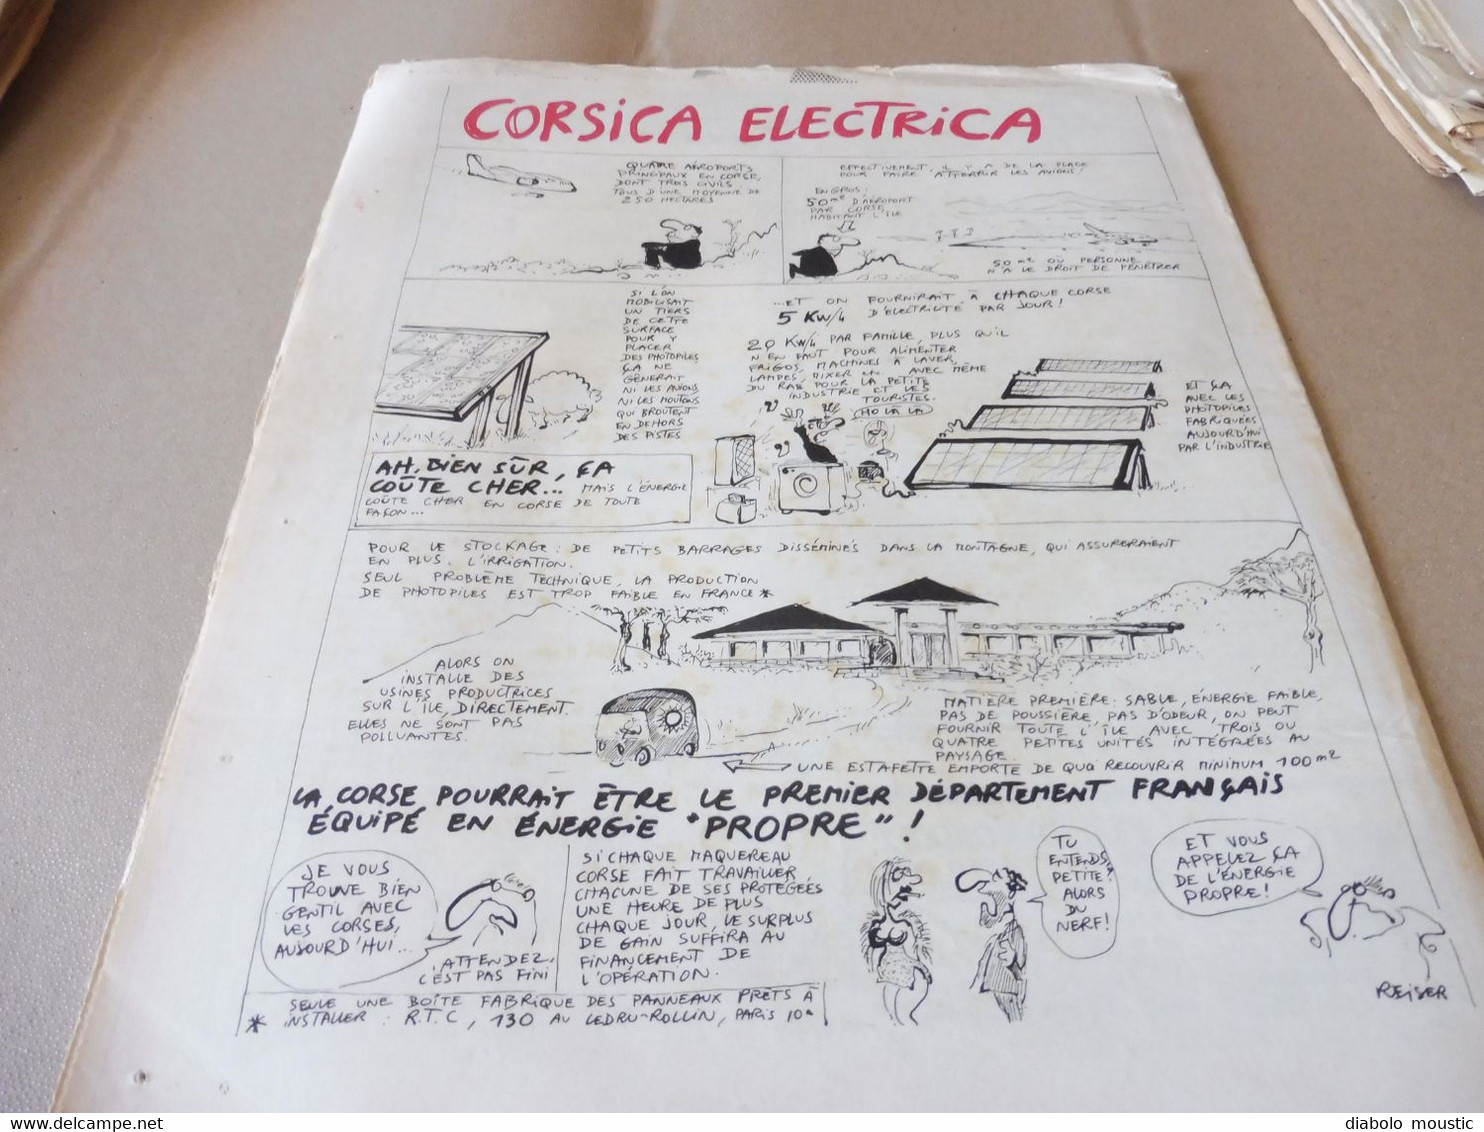 CORSICA ELECTRICA
QUATRE AÉROPORTS
PRINCIPAUX EN CORSE,
DONT TROIS CIVILS
TOUS D'UNE MOYENNE DE
250 HECTARES
EFFECTIVEMENT, IL Y A DE LA PLACE
POUR FAIRE ATTERRIR LES AVIONS!
EN GROS:
50 m² D'AÉROPORT
PAR CORSE
HABITANT L'ÎLE
50 m² OÙ PERSONNE
N'A LE DROIT DE PÉNÉTRER
SI L'ON
MOBILISAIT
UN TIERS
DE CETTE
SURFACE
POUR Y
PLACER
DES PHOTOPILES
ÇA NE
GÊNERAIT
NI LES AVIONS
NI LES MOUTONS
QUI BROUTENT
EN DEHORS
DES PISTES
...ET ON FOURNIRAIT À CHAQUE CORSE
5 KW/h D'ÉLECTRICITÉ PAR JOUR!
20 KW/h PAR FAMILLE, PLUS QU'IL
N'EN FAUT POUR ALIMENTER
FRIGOS, MACHINES À LAVER,
LAMPES, MIXER AVEC MÊME
DU RAB POUR LA PETITE
INDUSTRIE ET LES
TOURISTES.
HO LA LA
ET ÇA
AVEC LES
PHOTOPILES
FABRIQUÉES
AUJOURD'HUI
PAR L'INDUSTRIE
AH, BIEN SÛR, ÇA
COÛTE CHER... MAIS L'ÉNERGIE
COÛTE CHER EN CORSE DE TOUTE
FAÇON...
POUR LE STOCKAGE: DE PETITS BARRAGES DISSÉMINÉS DANS LA MONTAGNE, QUI ASSURERAIENT
EN PLUS L'IRRIGATION.
SEUL PROBLÈME TECHNIQUE, LA PRODUCTION
DE PHOTOPILES EST TROP FAIBLE EN FRANCE *
ALORS ON
INSTALLE DES
USINES PRODUCTRICES
SUR L'ÎLE, DIRECTEMENT.
ELLES NE SONT PAS
POLLUANTES.
MATIÈRE PREMIÈRE: SABLE, ÉNERGIE FAIBLE,
PAS DE POUSSIÈRE, PAS D'ODEUR, ON PEUT
FOURNIR TOUTE L'ÎLE AVEC TROIS OU
QUATRE PETITES UNITÉS INTÉGRÉES AU
PAYSAGE.
UNE ESTAFETTE EMPORTE DE QUOI RECOUVRIR MINIMUM 100 m²
LA CORSE POURRAIT ÊTRE LE PREMIER DÉPARTEMENT FRANÇAIS
ÉQUIPÉ EN ÉNERGIE "PROPRE"!
JE VOUS
TROUVE BIEN
GENTIL AVEC
LES CORSES,
AUJOURD'HUI...
ATTENDEZ,
C'EST PAS FINI
SI CHAQUE MAQUEREAU
CORSE FAIT TRAVAILLER
CHACUNE DE SES PROTÉGÉES
UNE HEURE DE PLUS
CHAQUE JOUR, LE SURPLUS
DE GAIN SUFFIRA AU
FINANCEMENT DE
L'OPÉRATION.
TU
ENTENDS,
PETITE?
ALORS
DU
NERF!
ET VOUS
APPELEZ ÇA
DE L'ÉNERGIE
PROPRE!
REISER
SEULE UNE BOÎTE FABRIQUE DES PANNEAUX PRÊTS À
* INSTALLER: R.T.C, 130 AV LEDRU-ROLLIN, PARIS 10e
diabolo moustic
www.delcampe.net